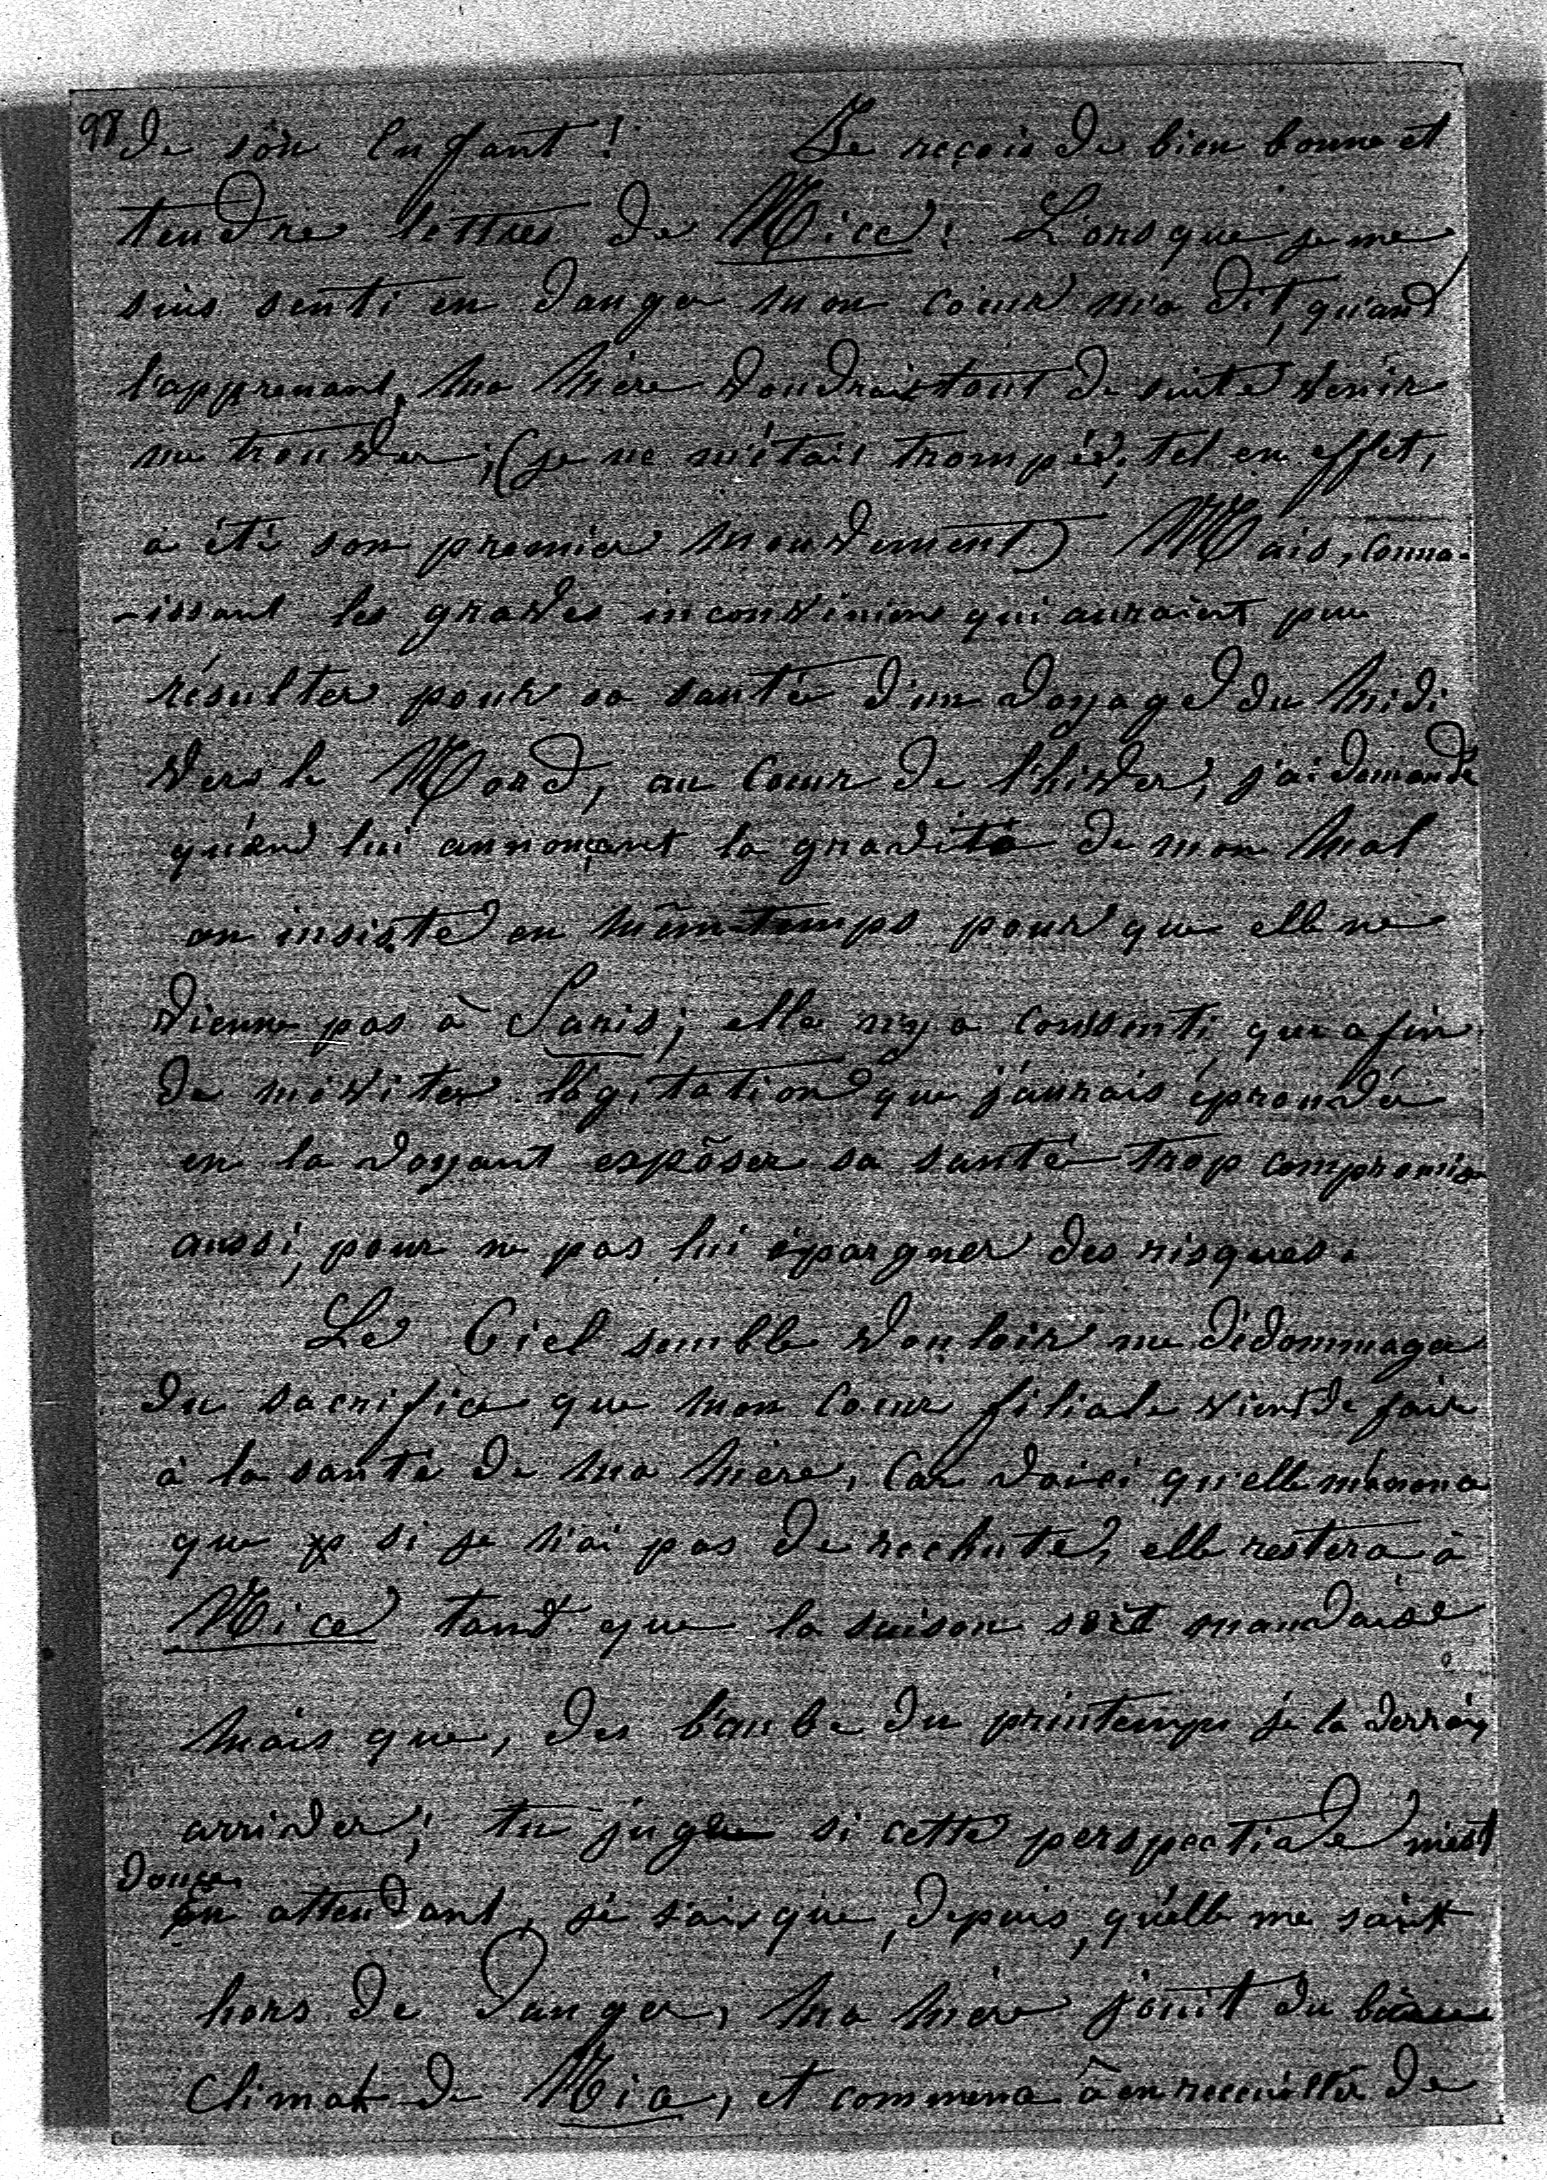 98 de son Enfant ! Je reçois de bien bonne et
tendre lettres de Nice ! Lorsque je me
suis senti en danger mon coeur m'a dit, qu'and
l'apprenant, ma mère voudrait tout de suite venir
me trouver ; (je ne m'étais trompée, tel en effet,
a été son premier mouvement) Mais, conna-
-issant les graves inconvénions qui auraient pue
résulter pour sa santé d'un voyage du midi
vers le Nord, au coeur de l'hiver, j'ai demandé
qu'and lui annonçant la gravité de mon mal
on insiste en même-temps pour que elle ne
vienne pas à Paris ; elle n'y a consenti, que afin
de m'éviter l'agitation que j'aurais éprouvée
en la voyant expôser sa santé trop compromise
aussi, pour ne pas lui épargner des risques.
Le Ciel semble vouloir me dédommager
du sacrifice que mon coeur filiale vient de faire
à la santé de ma mère, car voici qu'elle m'anonce
que si je n'ai pas de rechute, elle restera à
Nice tand que la saison soit mauvaise
mais que, des l'aube du printemps je la verrai
arriver ; tu juge si cette perspective m'est
douce
en attendant, je sais que, depuis, qu'elle me sait
hors de danger, ma mère jouit du
climat de Nice, et commence à en receuillir de